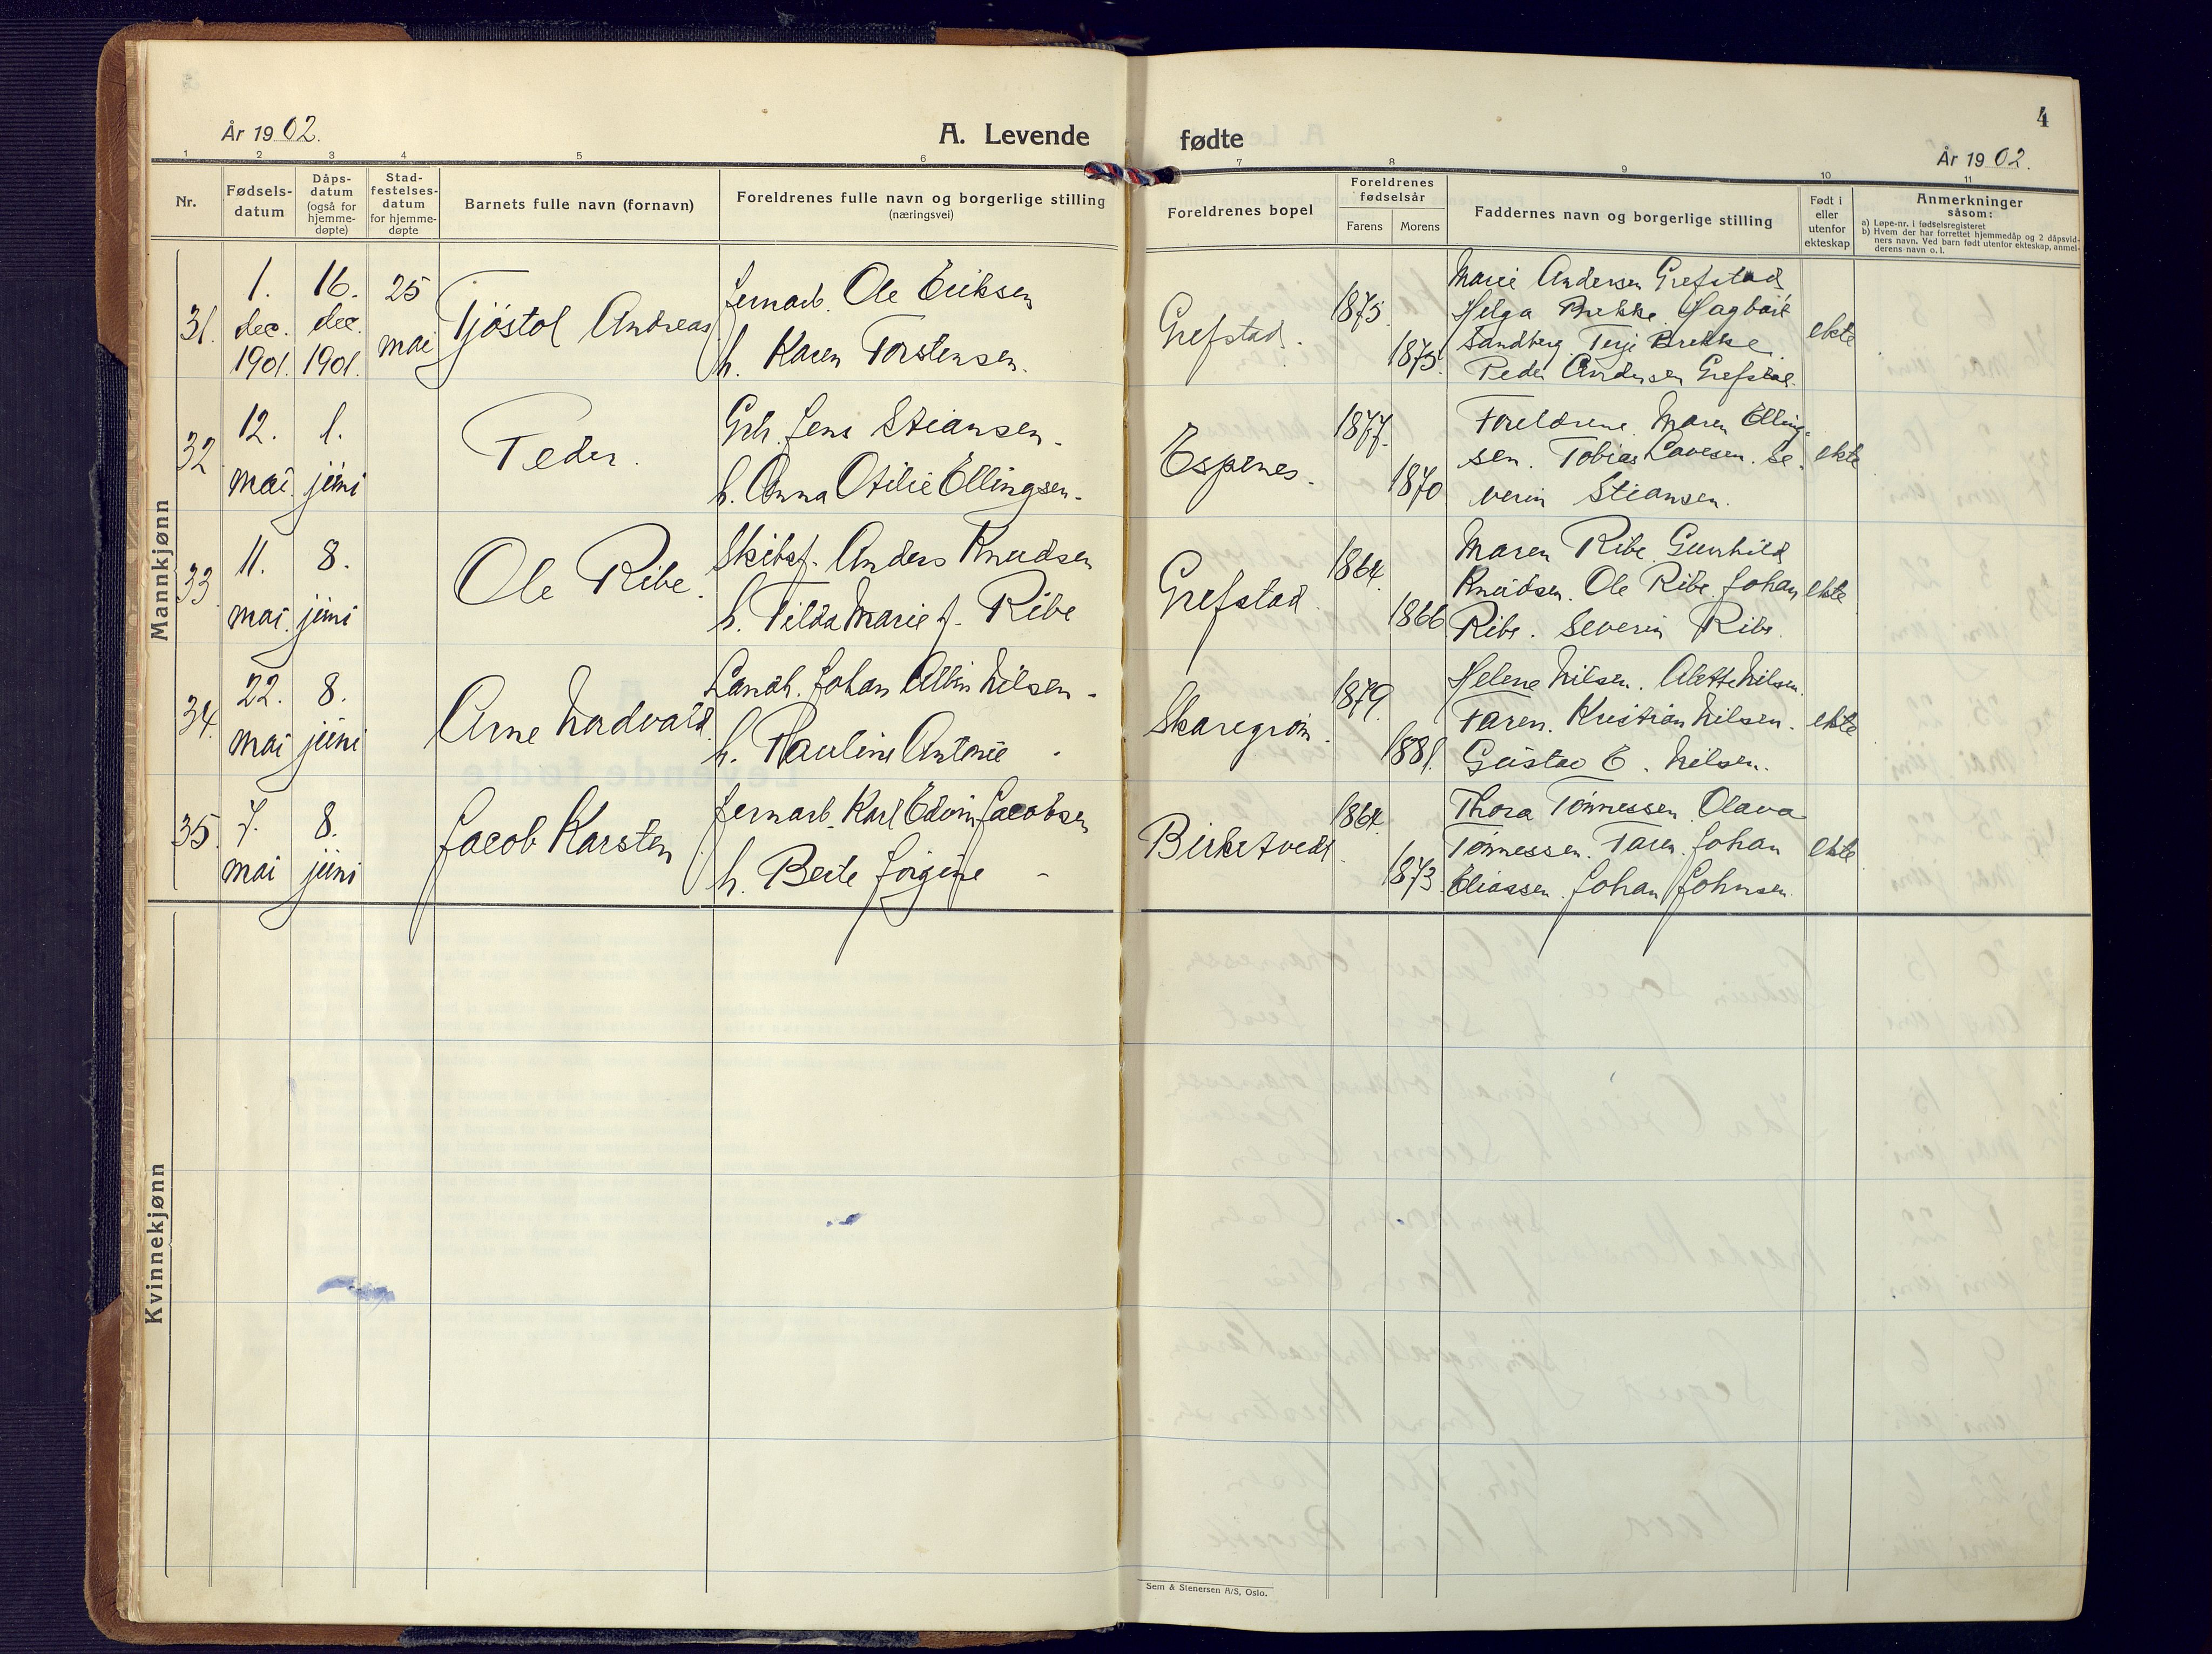 År 1902.
A. Levende
fødte
4
År 1902.
1 2 3 4 5 6 7 8 9 10 11
Nr.
Fødsels-
datum
Dåps-
datum
(også for
hjemme-
døpte)
Stad-
festelses-
datum
for hjemme-
døpte
Barnets fulle navn (fornavn)
Foreldrenes fulle navn og borgerlige stilling
(næringsvei)
Foreldrenes bopel
Foreldrenes
fødselsår
Farens Morens
Faddernes navn og borgerlige stilling
Født i
eller
utenfor
ekteskap
Anmerkninger
såsom:
a) Løpe-nr. i fødselsregisteret
b) Hvem der har forrettet hjemmedåp og 2 dåpsvid-
ners navn. Ved barn født utenfor ekteskap, anmel-
derens navn o. l.
Mannkjønn
31.
1.
dec.
1901.
16.
dec.
1901.
25
mai
Tjøstol Andreas
Jernarb. Ole Eriksen
h. Karen Torstensen.
Grefstad.
1875.
1875.
Marie Andersen Grefstad
Helga Brekke. Hagbart
Sandberg. Terje Brekke.
Peder Andersen Grefstad.
ekte
32
12.
mai.
1.
juni
Peder.
Grb. Jens Stiansen.
h. Anna Otilie Ellingsen.
Espenes.
1877.
1870
Foreldrene. Maren Elling-
sen. Tobias Lavesen. Se-
verin Stiansen.
ekte
33
11.
mai.
8.
juni
Ole Ribe.
Skibsf. Anders Knudsen
h. Tilda Marie f. Ribe
Grefstad.
1864.
1866
Maren Ribe. Gunhild
Knudsen. Ole Ribe. Johan
Ribe. Severin Ribe.
ekte
34.
22.
mai
8.
juni
Arne Nordvald.
Landh. Johan Albin Nilsen -
h. Pauline Antonie
Skaregrøm.
1879.
1881.
Helene Nilsen. Alette Nilsen.
Faren. Kristian Nilsen.
Gustav E. Nilsen.
ekte
35.
7.
mai
8.
juni
Jacob Karsten.
Jernarb. Karl Edvin Jacobsen
h. Berte Jørgine -
Birketvedt.
1864.
1873.
Thora Tønnessen. Olava
Tønnessen. Faren. Johan
Eliassen. Johan Johnsen.
ekte
Kvinnekjønn
Sem & Stenersen A/S, Oslo.